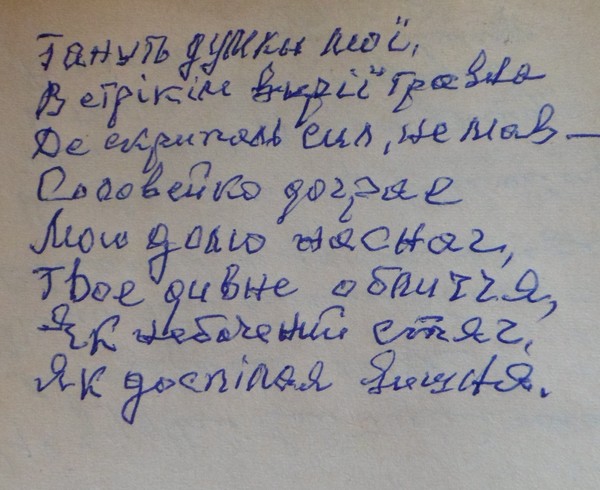 Тануть думки мої,
В стрікім вирії травня
Де скрипаль сил, не мав —
Соловейко дограє
Мою долю наснаг,
Твоє дивне обличчя,
Як небачений стяг,
Як доспілая вишня.